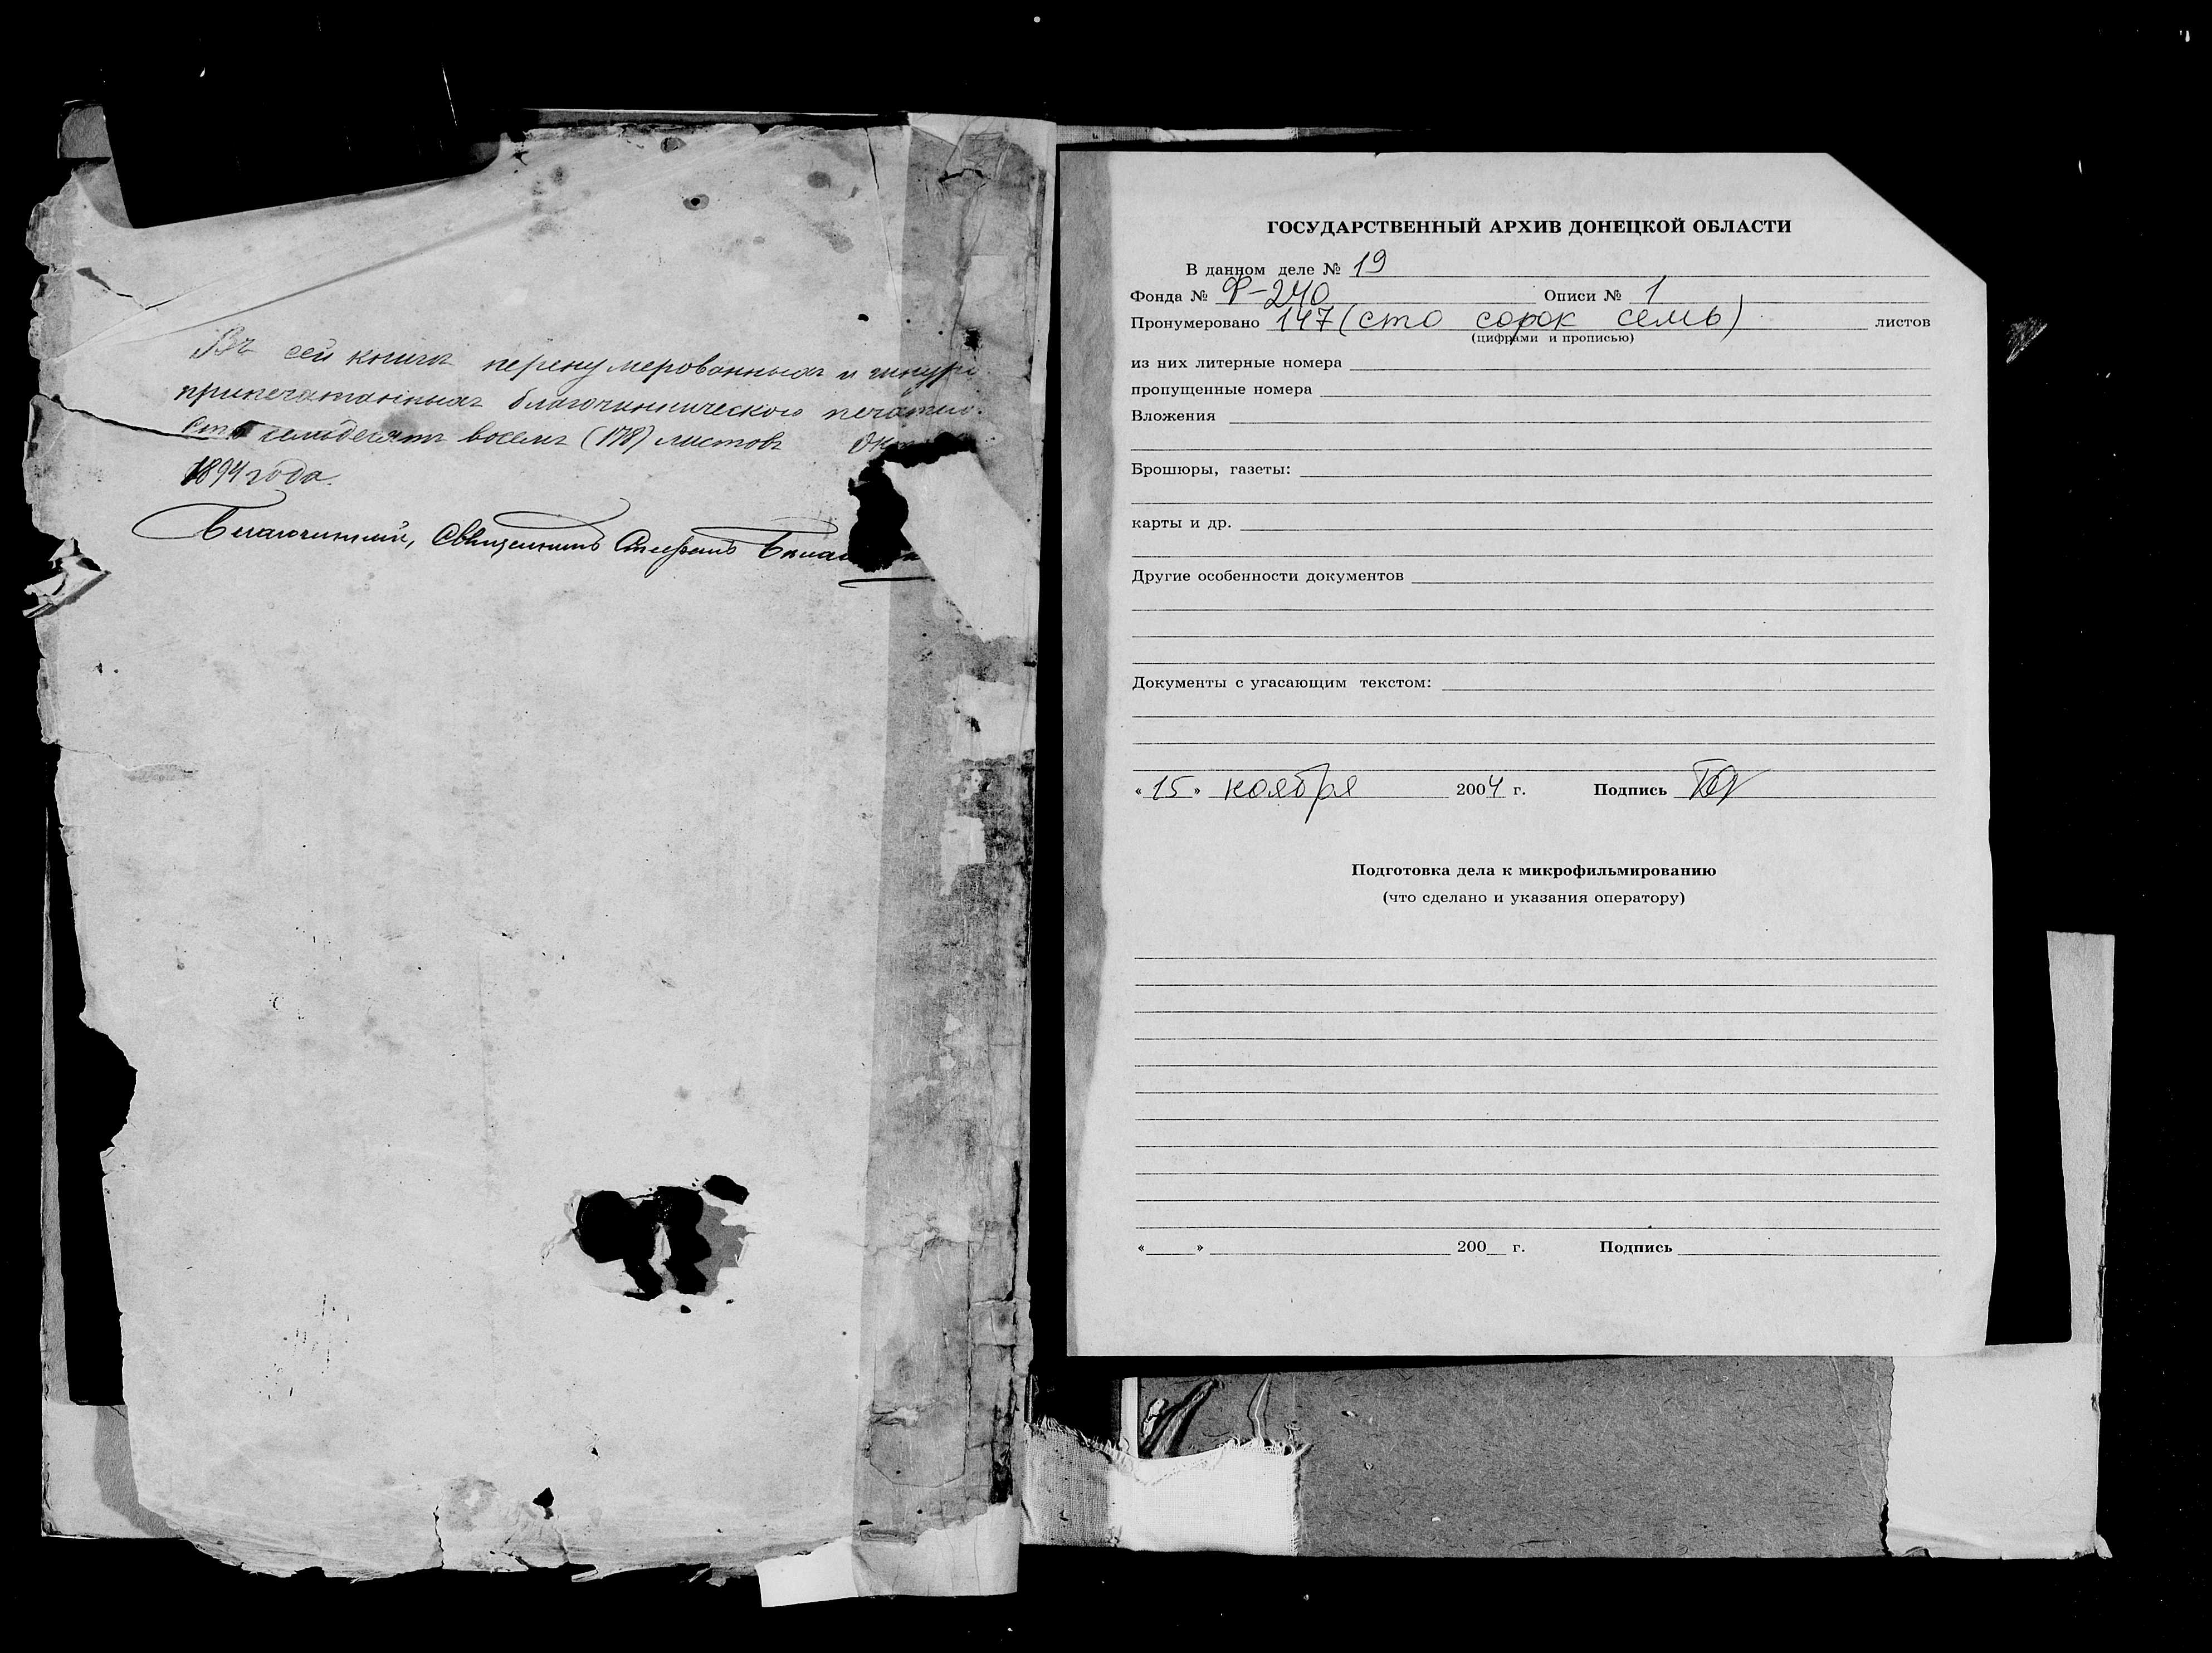 Въ сей книгѣ перенумерованныхъ и шнур
припечатанныхъ благочинническою печатью
Сто семьдесятъ восемь (178) листовъ Окт
1894 года.
Благочинный, Священникъ Стефанъ
ГОСУДАРСТВЕННЫЙ АРХИВ ДОНЕЦКОЙ ОБЛАСТИ
В данном деле № 19
Фонда № Ф-240 Описи № 1
Пронумеровано 147 (сто сорок семь) листов
(цифрами и прописью)
из них литерные номера
пропущенные номера
Вложения
Брошюры, газеты:
карты и др.
Другие особенности документов
Документы с угасающим текстом:
«15» ноября 2004 г. Подпись
Подготовка дела к микрофильмированию
(что сделано и указания оператору)
« » 200 г. Подпись